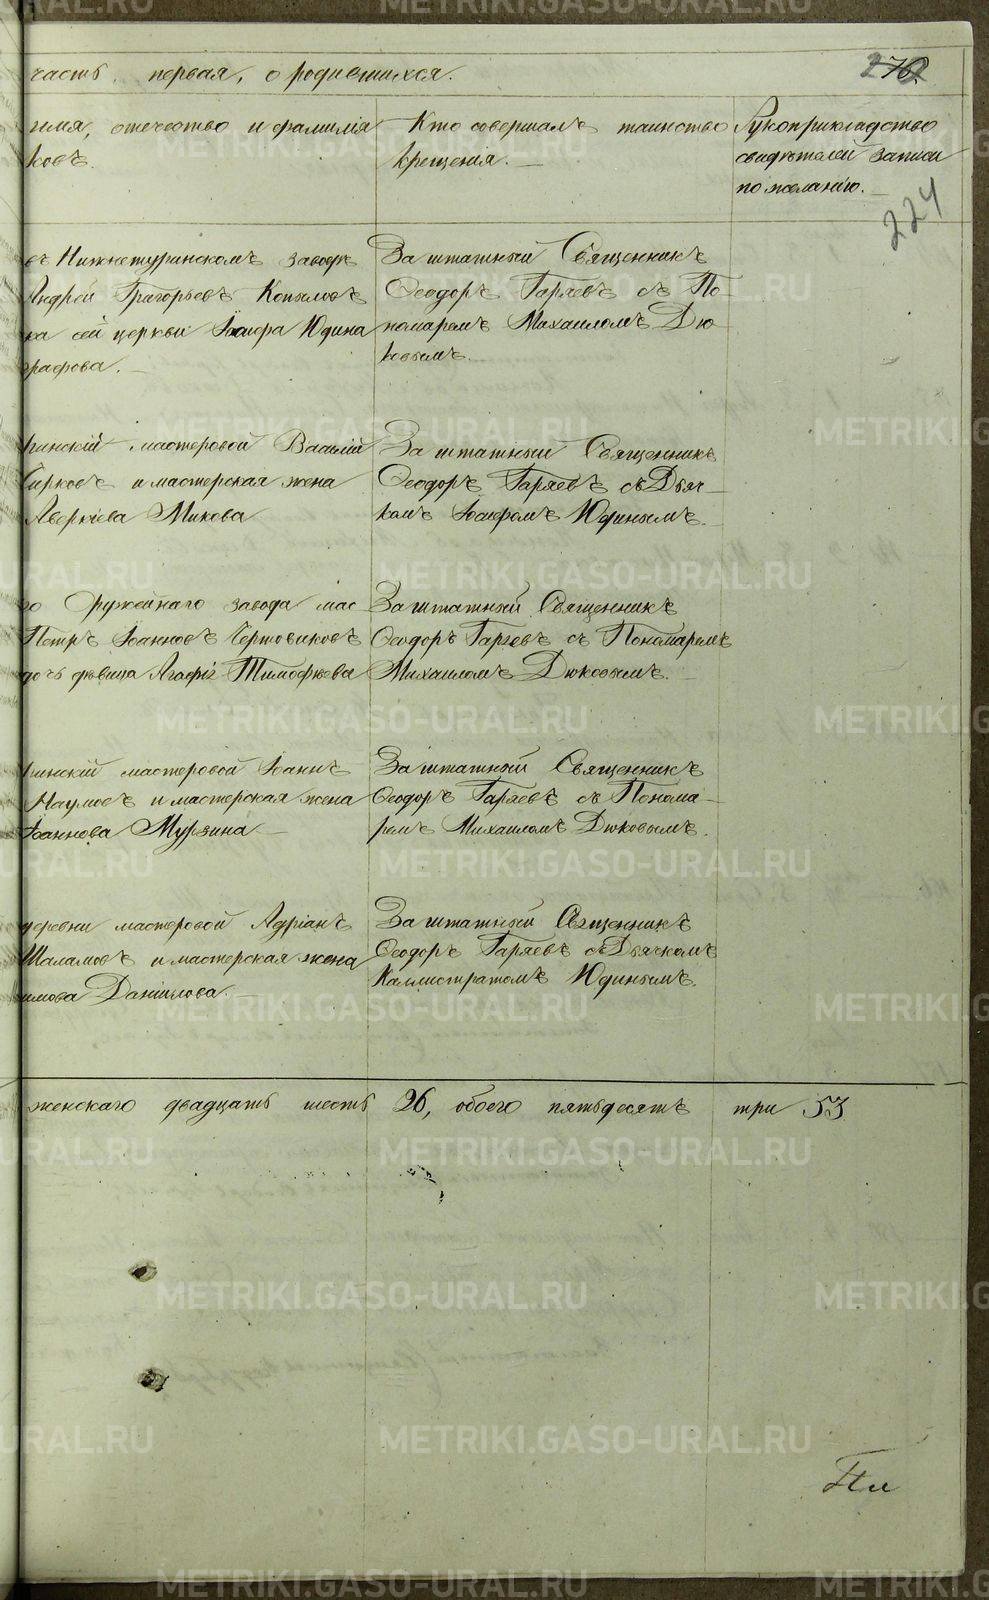 часть первая, о родившихся.
224
имя, отечество и фамилія
ковъ.
Кто совершалъ таинство
крещенія.
Рукоприкладство
свидѣтелей записи
по желанію.
въ Нижнетуринскомъ заводѣ
Андрей Григорьевъ Копыловъ
ка сей церкви Іосифа Юдина
графова.
Заштатный Священникъ
Ѳеодоръ Гаряевъ съ По-
номаремъ Михаиломъ Дю-
ковымъ.
ринскій мастеровой Василій
Чирковъ и мастерская жена
Аверкіева Микова
Заштатный Священникъ
Ѳеодоръ Гаряевъ съ Дьяч-
комъ Іосифомъ Юдинымъ.
го Оружейнаго завода мас
Петръ Іоанновъ Чертовиковъ
дочь дѣвица Агафія Тимофѣева
Заштатный Священникъ
Ѳеодоръ Гаряевъ съ Пономаремъ
Михаиломъ Дюковымъ.
ринскій мастеровой Іоаннъ
Наумовъ и мастерская жена
Іоаннова Мурзина
Заштатный Священникъ
Ѳеодоръ Гаряевъ съ Понома-
ремъ Михаиломъ Дюковымъ.
деревни мастеровой Адріанъ
Шаламовъ и мастерская жена
имова Даніилова.
Заштатный Священникъ
Ѳеодоръ Гаряевъ съ Дьячкомъ
Каллистратомъ Юдинымъ.
женскаго двадцать шесть 26, обоего пятьдесятъ три 53.
METRIKI.GASO-URAL.RU